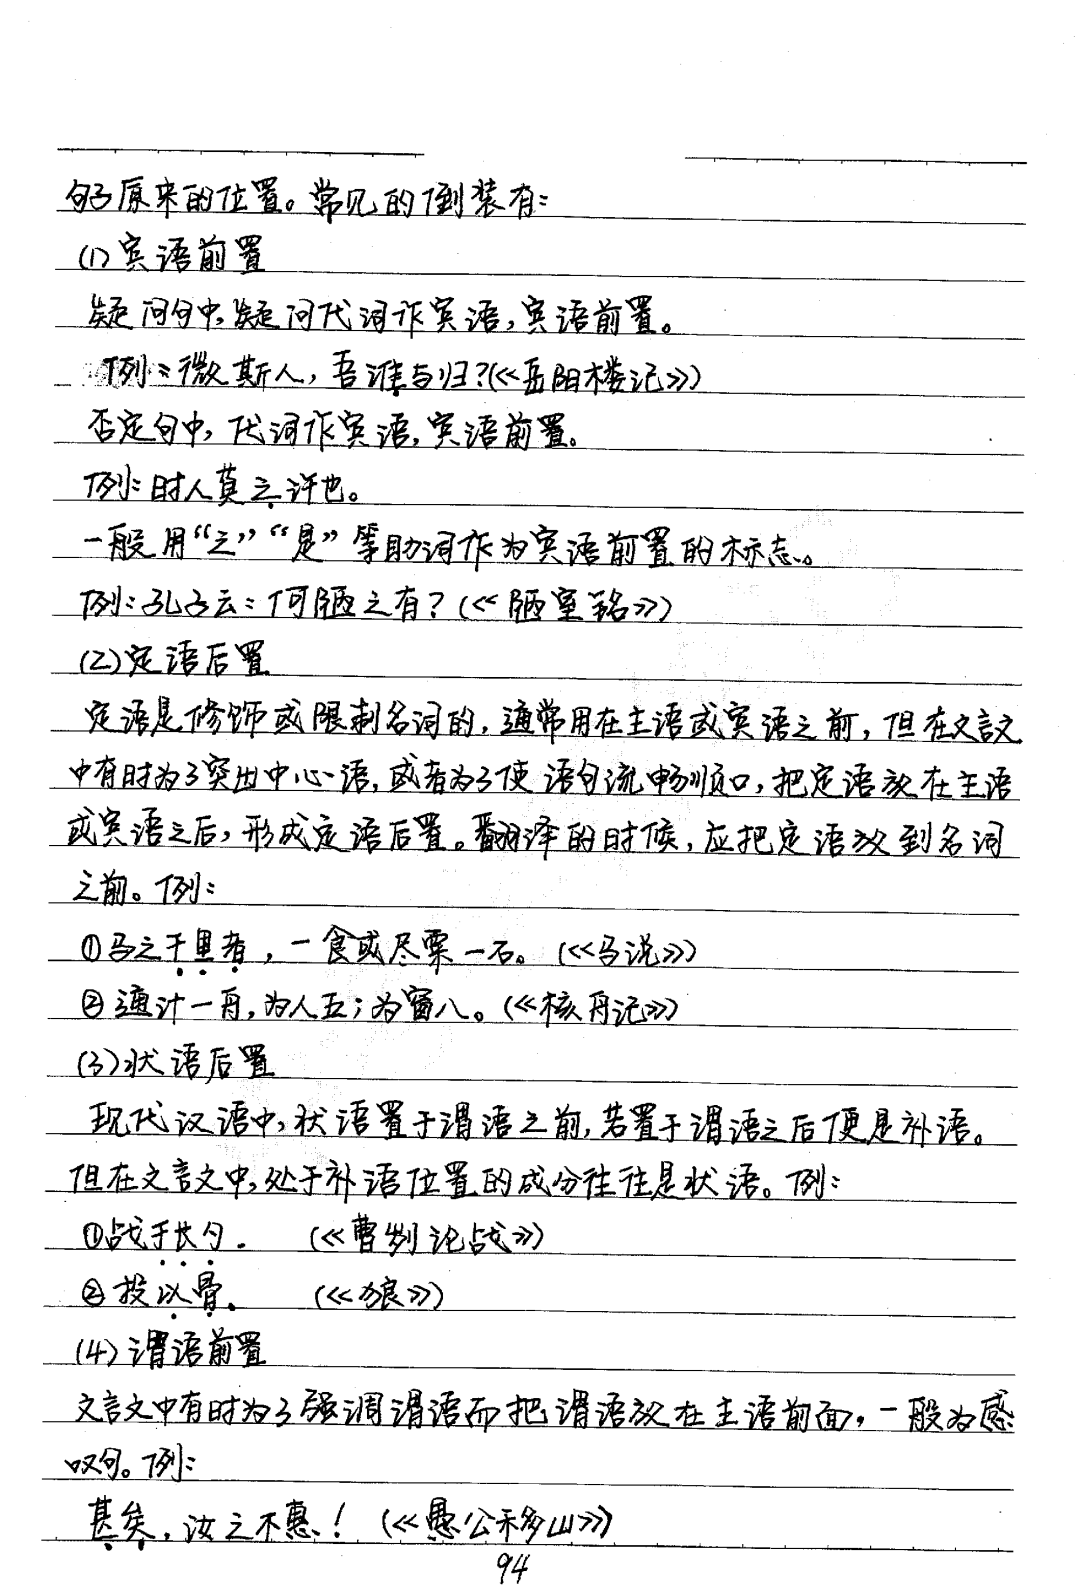 句子原来的位置。常见的倒装有:
(1)宾语前置
疑问句中,疑问代词作宾语,宾语前置。
例:微斯人,吾谁与归?(《岳阳楼记》)
否定句中,代词作宾语,宾语前置。
例:时人莫之许也。
一般用“之”“是”等助词作为宾语前置的标志。
例:孔子云:何陋之有?(《陋室铭》)
(2)定语后置
定语是修饰或限制名词的,通常用在主语或宾语之前,但在文言文
中有时为了突出中心语,或者为了使语句流畅顺口,把定语放在主语
或宾语之后,形成定语后置。翻译的时候,应把定语放到名词
之前。例:
①马之千里者,一食或尽粟一石。(《马说》)
②通计一舟,为人五;为窗八。(《核舟记》)
(3)状语后置
现代汉语中,状语置于谓语之前,若置于谓语之后便是补语。
但在文言文中,处于补语位置的成分往往是状语。例:
①战于长勺. (《曹刿论战》)
②投以骨. (《狼》)
(4)谓语前置
文言文中有时为了强调谓语而把谓语放在主语前面,一般为感
叹句。例:
甚矣,汝之不惠!(《愚公移山》)
94